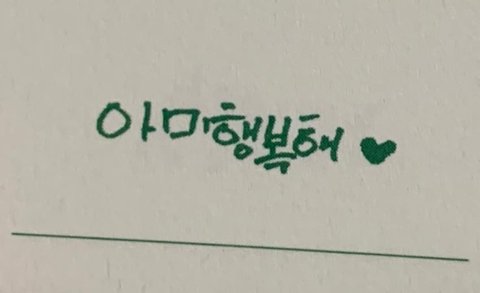 아미행복해 ♥